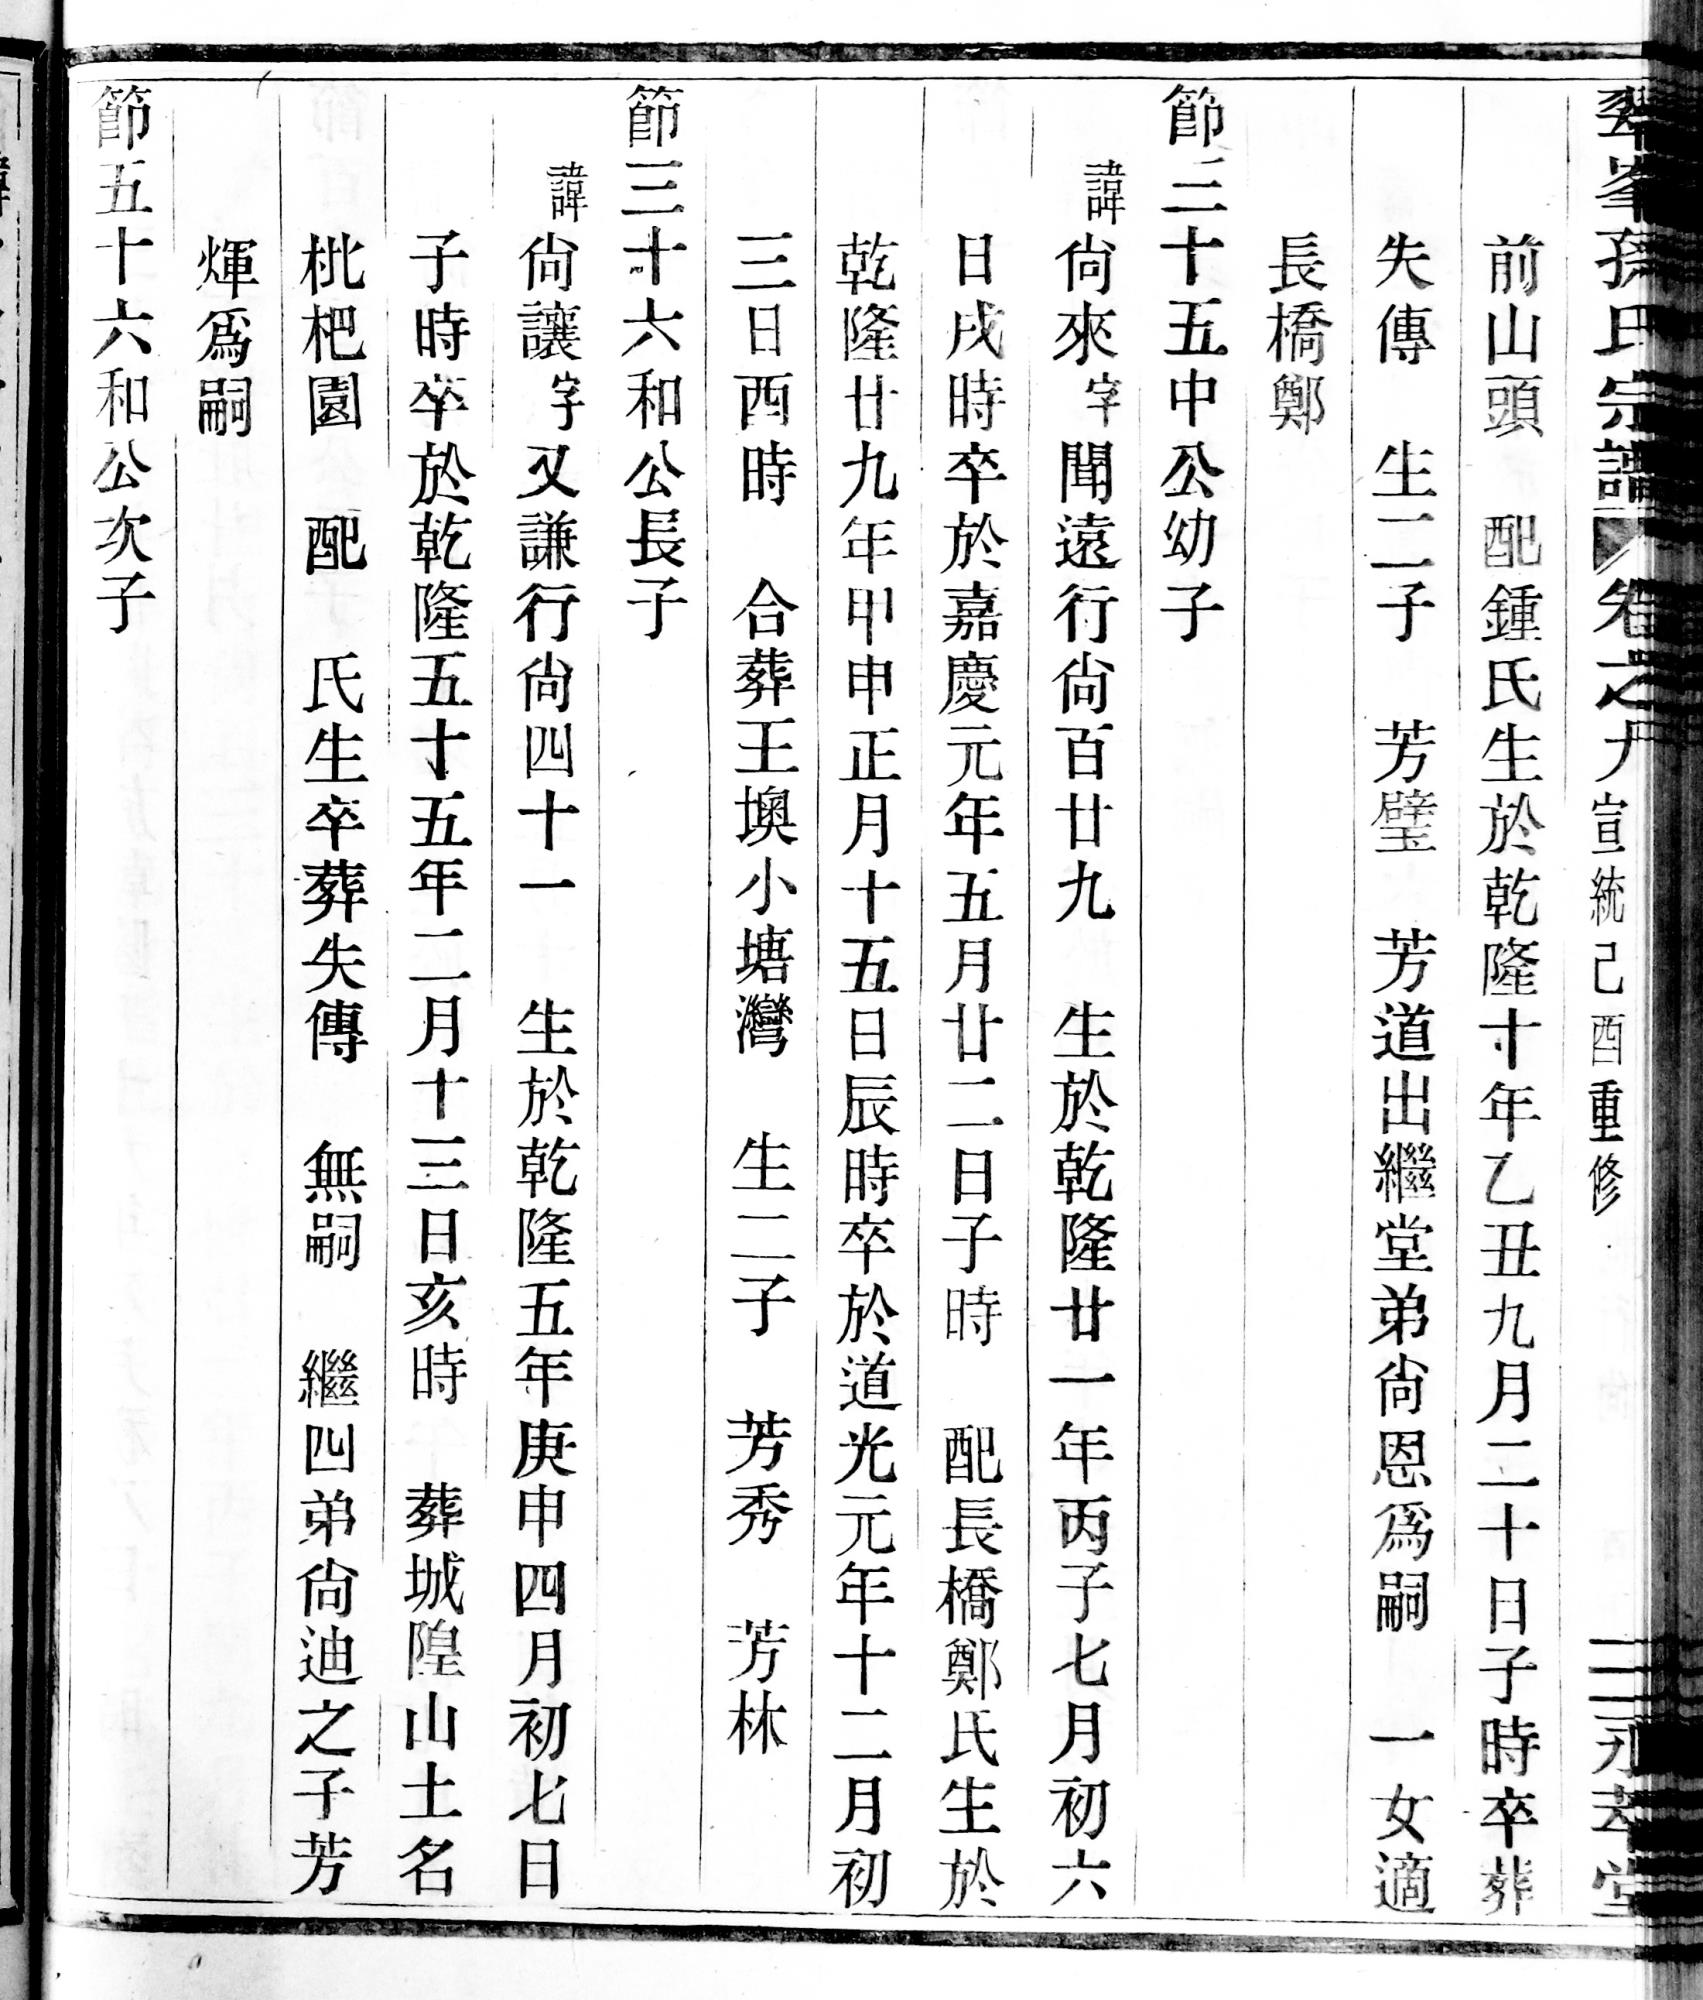 翠峯孫氏宗譜 卷之九 宣統己酉重修 二 永萃堂
前山頭 配鍾氏生於乾隆十年乙丑九月二十日子時卒葬
失傳 生二子 芳璧 芳道出繼堂弟尙恩爲嗣 一女適
長橋鄭
節二十五中公幼子
諱尙來字聞遠行尙百廿九 生於乾隆廿一年丙子七月初六
日戌時卒於嘉慶元年五月廿二日子時 配長橋鄭氏生於
乾隆廿九年甲申正月十五日辰時卒於道光元年十二月初
三日酉時 合葬王墺小塘灣 生二子 芳秀 芳林
節三十六和公長子
諱尙讓字又謙行尙四十一 生於乾隆五年庚申四月初七日
子時卒於乾隆五十五年二月十三日亥時 葬城隍山土名
枇杷園 配 氏生卒葬失傳 無嗣 繼四弟尙迪之子芳
煇爲嗣
節五十六和公次子